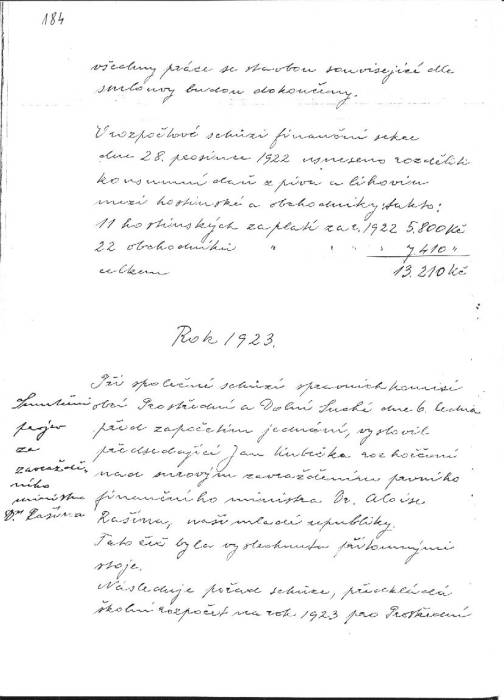 184
všechny práce se stavbou související dle
smlouvy budou dokončeny.
V rozpočtové schůzi finanční sekce
dne 28. prosince 1922 usneseno rozděliti
konsumní daň z piva a lihovin
mezi hostinské a obchodníky takto:
11 hostinských zaplatí za r. 1922 5.800 Kč
22 obchodníků " " " " 7.410 "
celkem 13.210 Kč
Rok 1923.
Při společné schůzi správních komisí
obcí Prostřední a Dolní Suché dne 6. ledna
před započetím jednání, vyslovil
předsedající Jan rozhořčení
nad surovým zavražděním prvního
finančního ministra Dr. Aloise
Rašína, naší mladé republiky.
Tato řeč byla vyslechnuta přítomnými
stoje.
Následuje pořad schůze, předkládá
školní rozpočet na rok 1923 pro Prostřední
Smuteční
projev
za
zavraždě-
ného
ministra
Dra Rašína